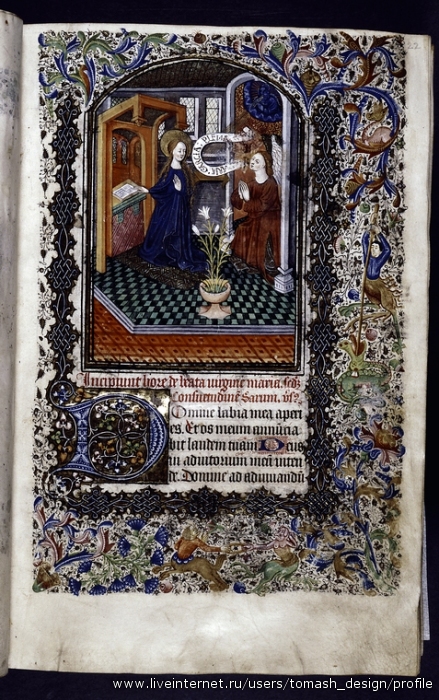 22
AVE GRACIA PLENA
Incipiunt hore de beata virgine maria. sedz
Consuetudinē Sarum. vs?
Domine labia mea aperi
es. Et os meum annūcia
bit laudem tuam Deus
in adiutorium meū inten
de. Domine ad adiuuandū
www.liveinternet.ru/users/tomash_design/profile